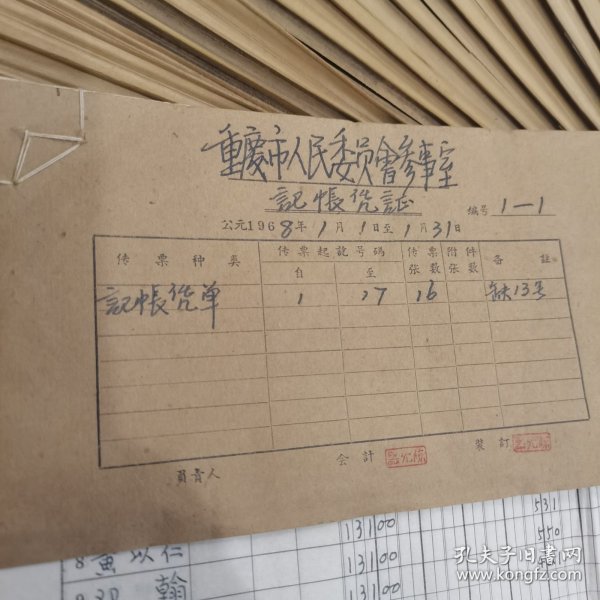 重慶市人民委員會參事室
記帳凭証
编号 1—1
公元1968年1月1日至1月31日
传票种类 传票起訖号碼 传票張数 附件張数 备註
自 至
記帳凭单 1 17 16 缺13号
会計 裝訂
負責人
531
13100
550
8 黄以仁 13100
翰 13100
孔夫子旧書网
www.kongfz.com